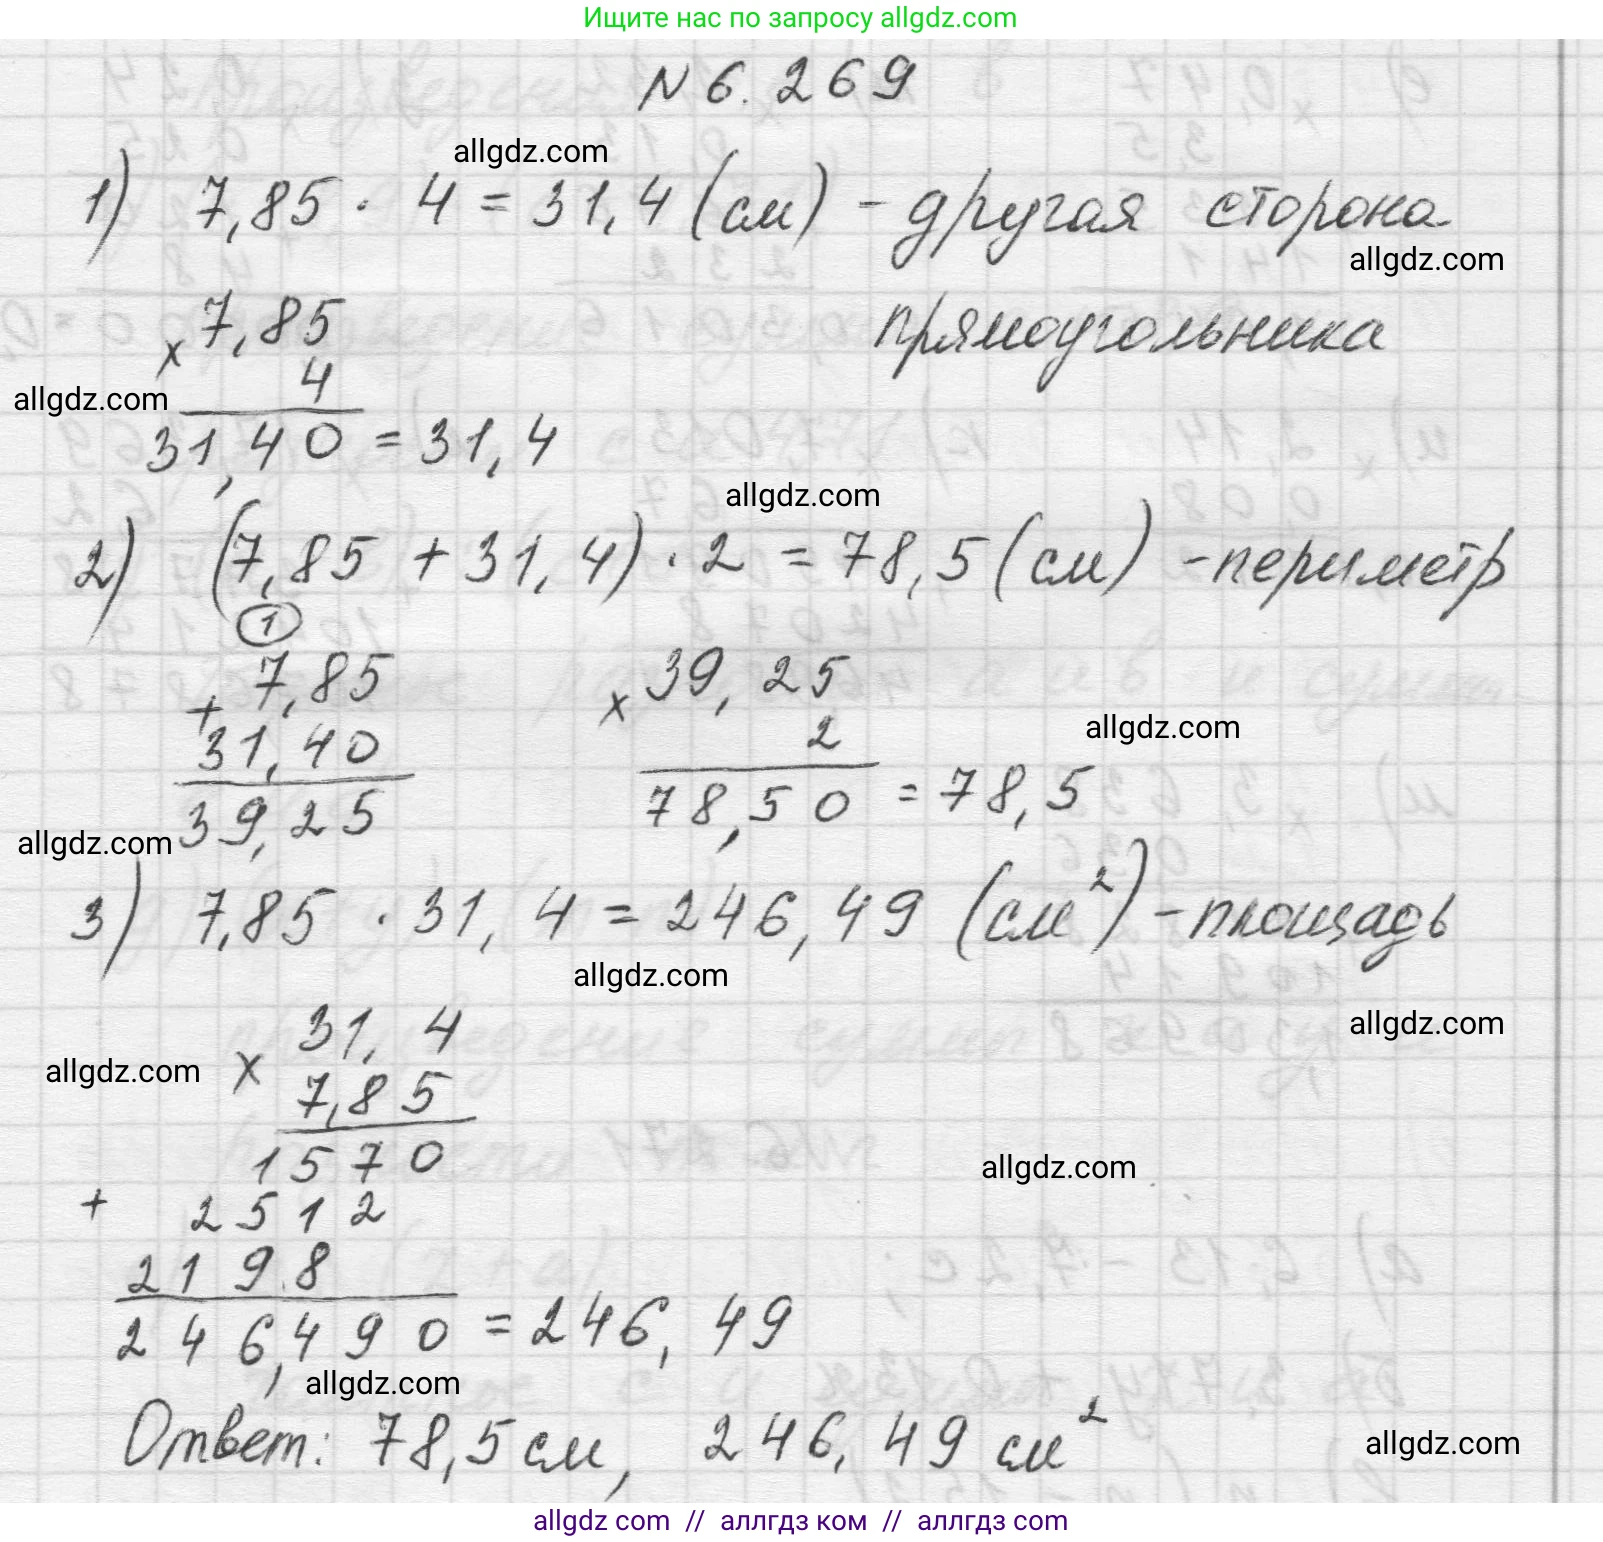 Ищите нас по запросу allgdz.com
N 6.269
allgdz.com
1) 7,85 · 4 = 31,4 (см) - другая сторона
allgdz.com
прямоугольника
× 7,85
4
allgdz.com
31,40 = 31,4
allgdz.com
2) (7,85 + 31,4) · 2 = 78,5 (см) - периметр
1
+ 7,85 × 39,25
31,40 2
allgdz.com
39,25 78,50 = 78,5
allgdz.com
3) 7,85 · 31,4 = 246,49 (см²) - площадь
allgdz.com
allgdz.com
× 31,4
allgdz.com
7,85
1570
allgdz.com
+ 2512
2198
246,490 = 246,49
allgdz.com
Ответ: 78,5 см, 246,49 см²
allgdz.com
allgdz com // аллгдз ком // аллгдз com